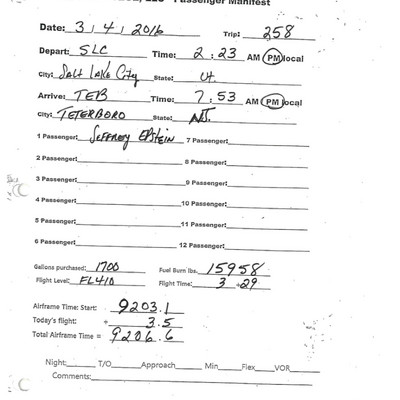 LLC Passenger Manifest
Date: 3/4/2016 Trip: 258
Depart: SLC Time: 2:23 AM PM local
City: Salt Lake City State: Ut.
Arrive: TEB Time: 7:53 AM PM local
City: TETERBORO State: NJ.
1 Passenger: Jeffrey Epstein 7 Passenger:
2 Passenger: 8 Passenger:
3 Passenger: 9 Passenger:
4 Passenger: 10 Passenger:
5 Passenger: 11 Passenger:
6 Passenger: 12 Passenger:
Gallons purchased: 1700 Fuel Burn lbs. 15958
Flight Level: FL410 Flight Time: 3 +29
Airframe Time: Start: 9203.1
Today's flight: + 3.5
Total Airframe Time = 9206.6
Night: T/O Approach Min Flex VOR
Comments: